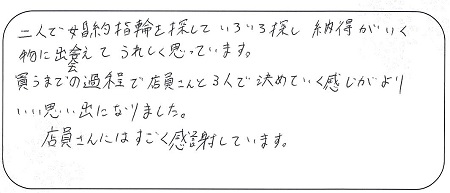 二人で婚約指輪を探して いろいろ探し 納得がいく
物に出会えて うれしく思っています。
買うまでの過程で店員さんと3人で決めていく感じがより
いい思い出になりました。
店員さんにはすごく感謝しています。